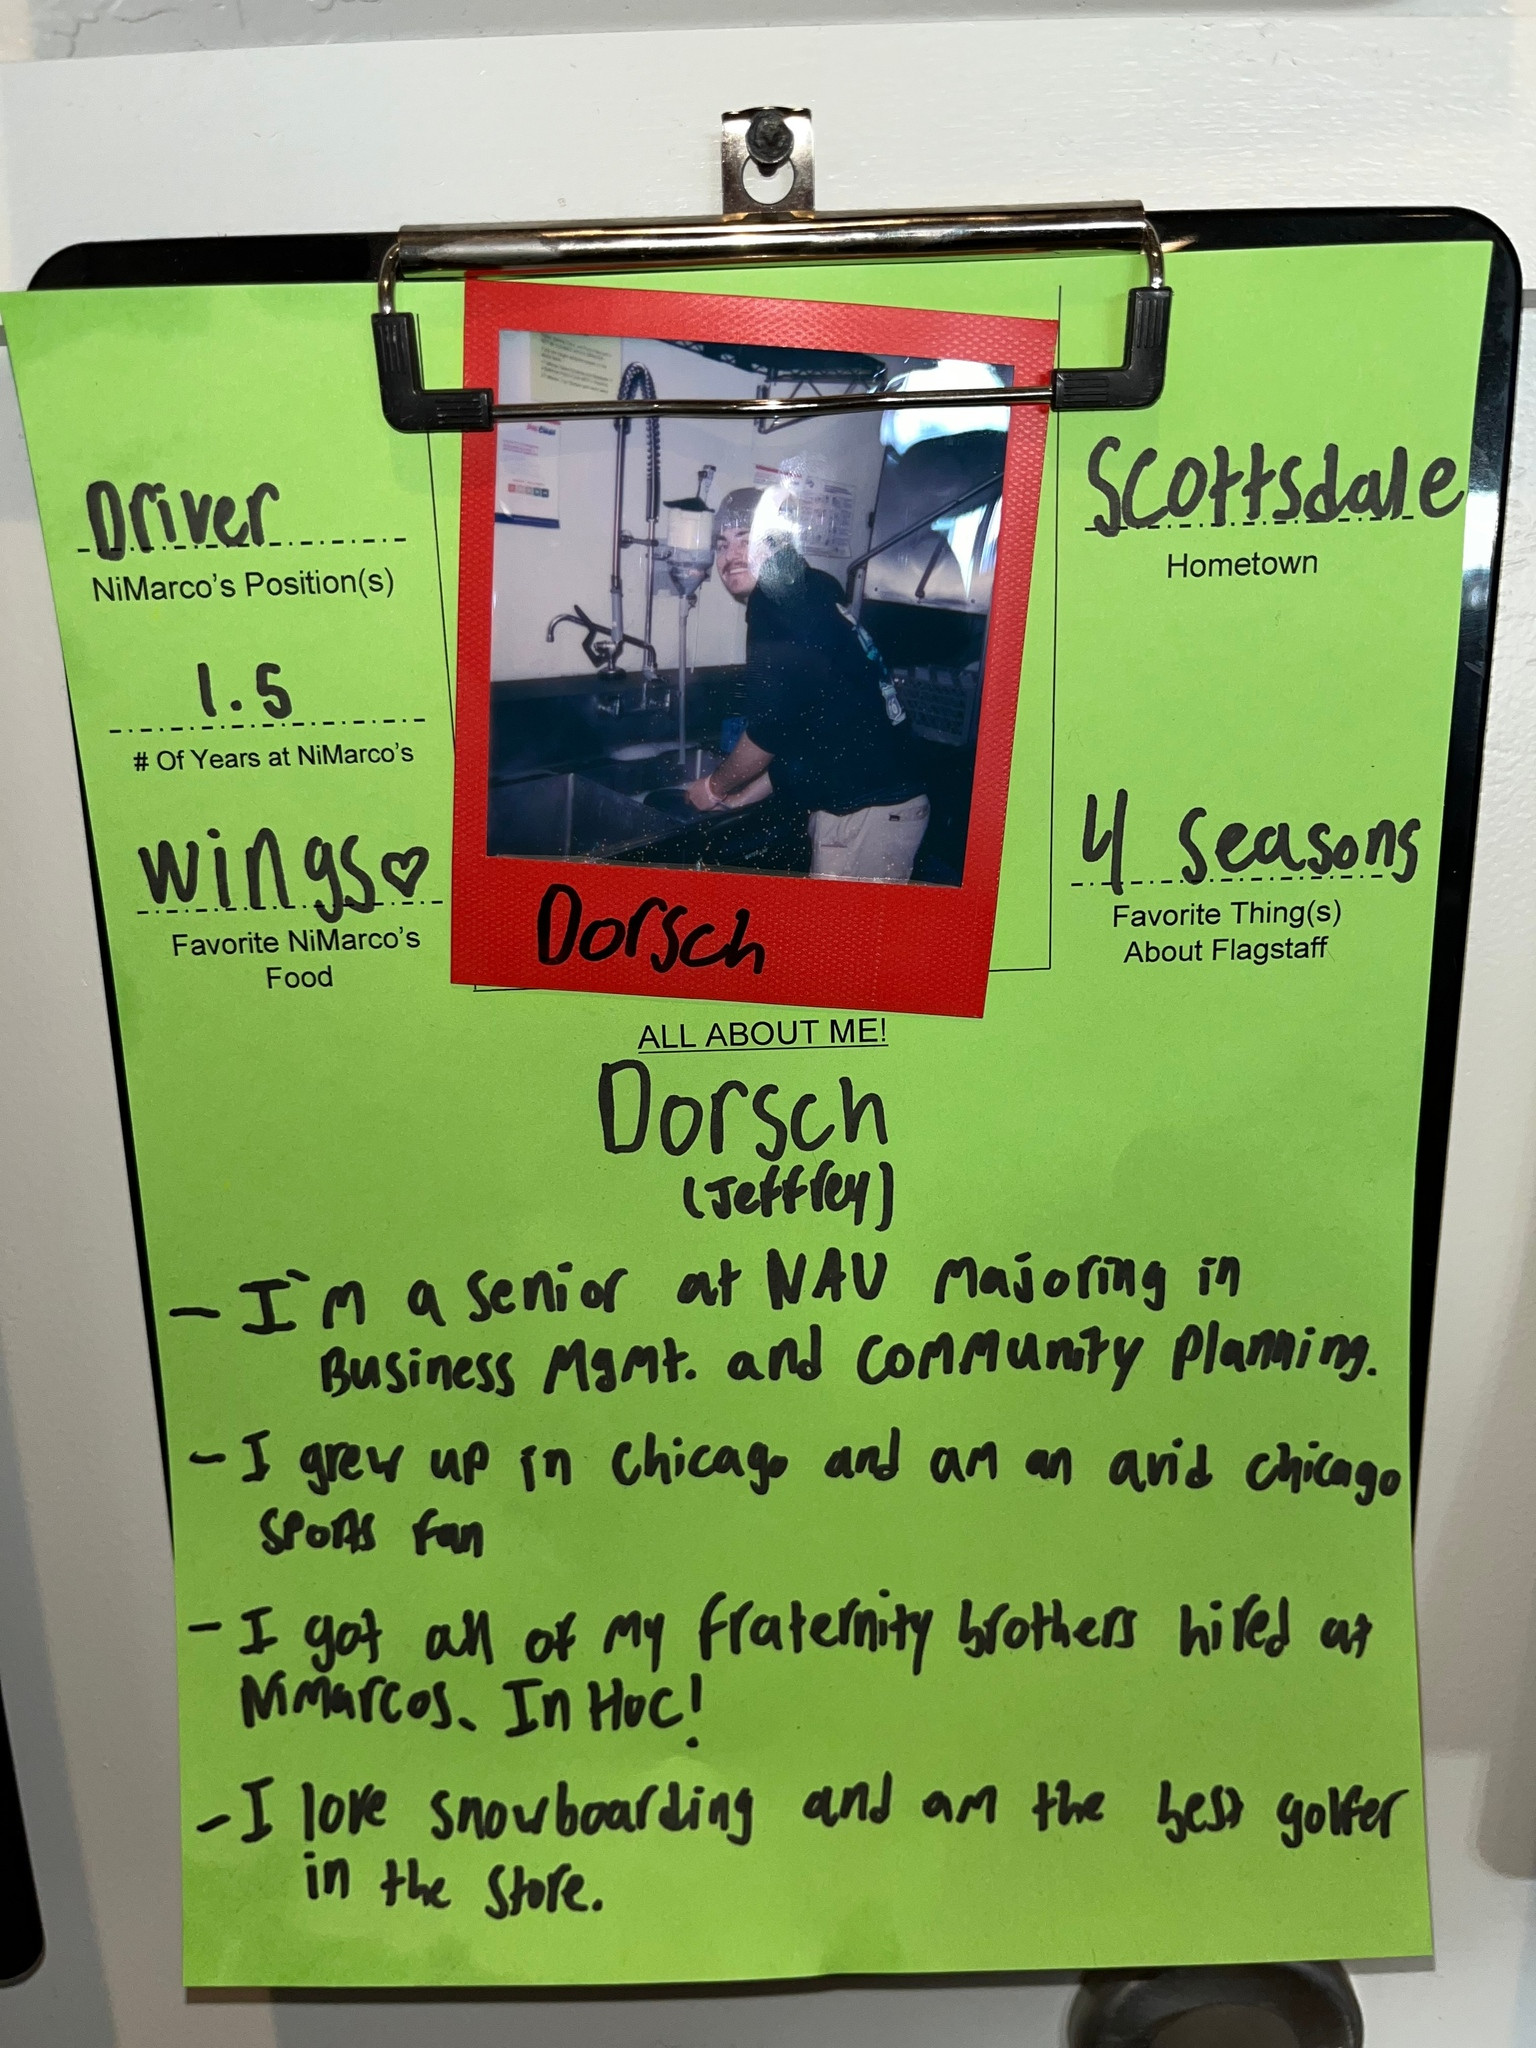 Driver
NiMarco's Position(s)
1.5
# Of Years at NiMarco's
Wings♡
Favorite NiMarco's
Food
Dorsch
Scottsdale
Hometown
4 Seasons
Favorite Thing(s)
About Flagstaff
ALL ABOUT ME!
Dorsch
(Jeffrey)
- I'm a senior at NAU majoring in
Business Mgmt. and Community Planning.
- I grew up in Chicago and am an avid Chicago
sports fan
- I got all of my fraternity brothers hired at
NiMarcos. In Hoc!
- I love snowboarding and am the best golfer
in the store.